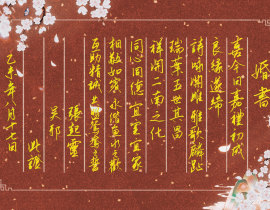 婚書
喜今日嘉禮初成
良緣遂締
詩詠關雎 雅歌麟趾
瑞葉五世其昌
祥開二南之化
同心同德 宜室宜家
相敬如賓 永諧魚水之歡
互助精誠 共盟鴛鴦之誓
張起靈
吳邪
此證
乙未年八月十七日